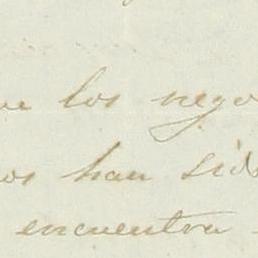 ue los nego
os han sido
encuentra